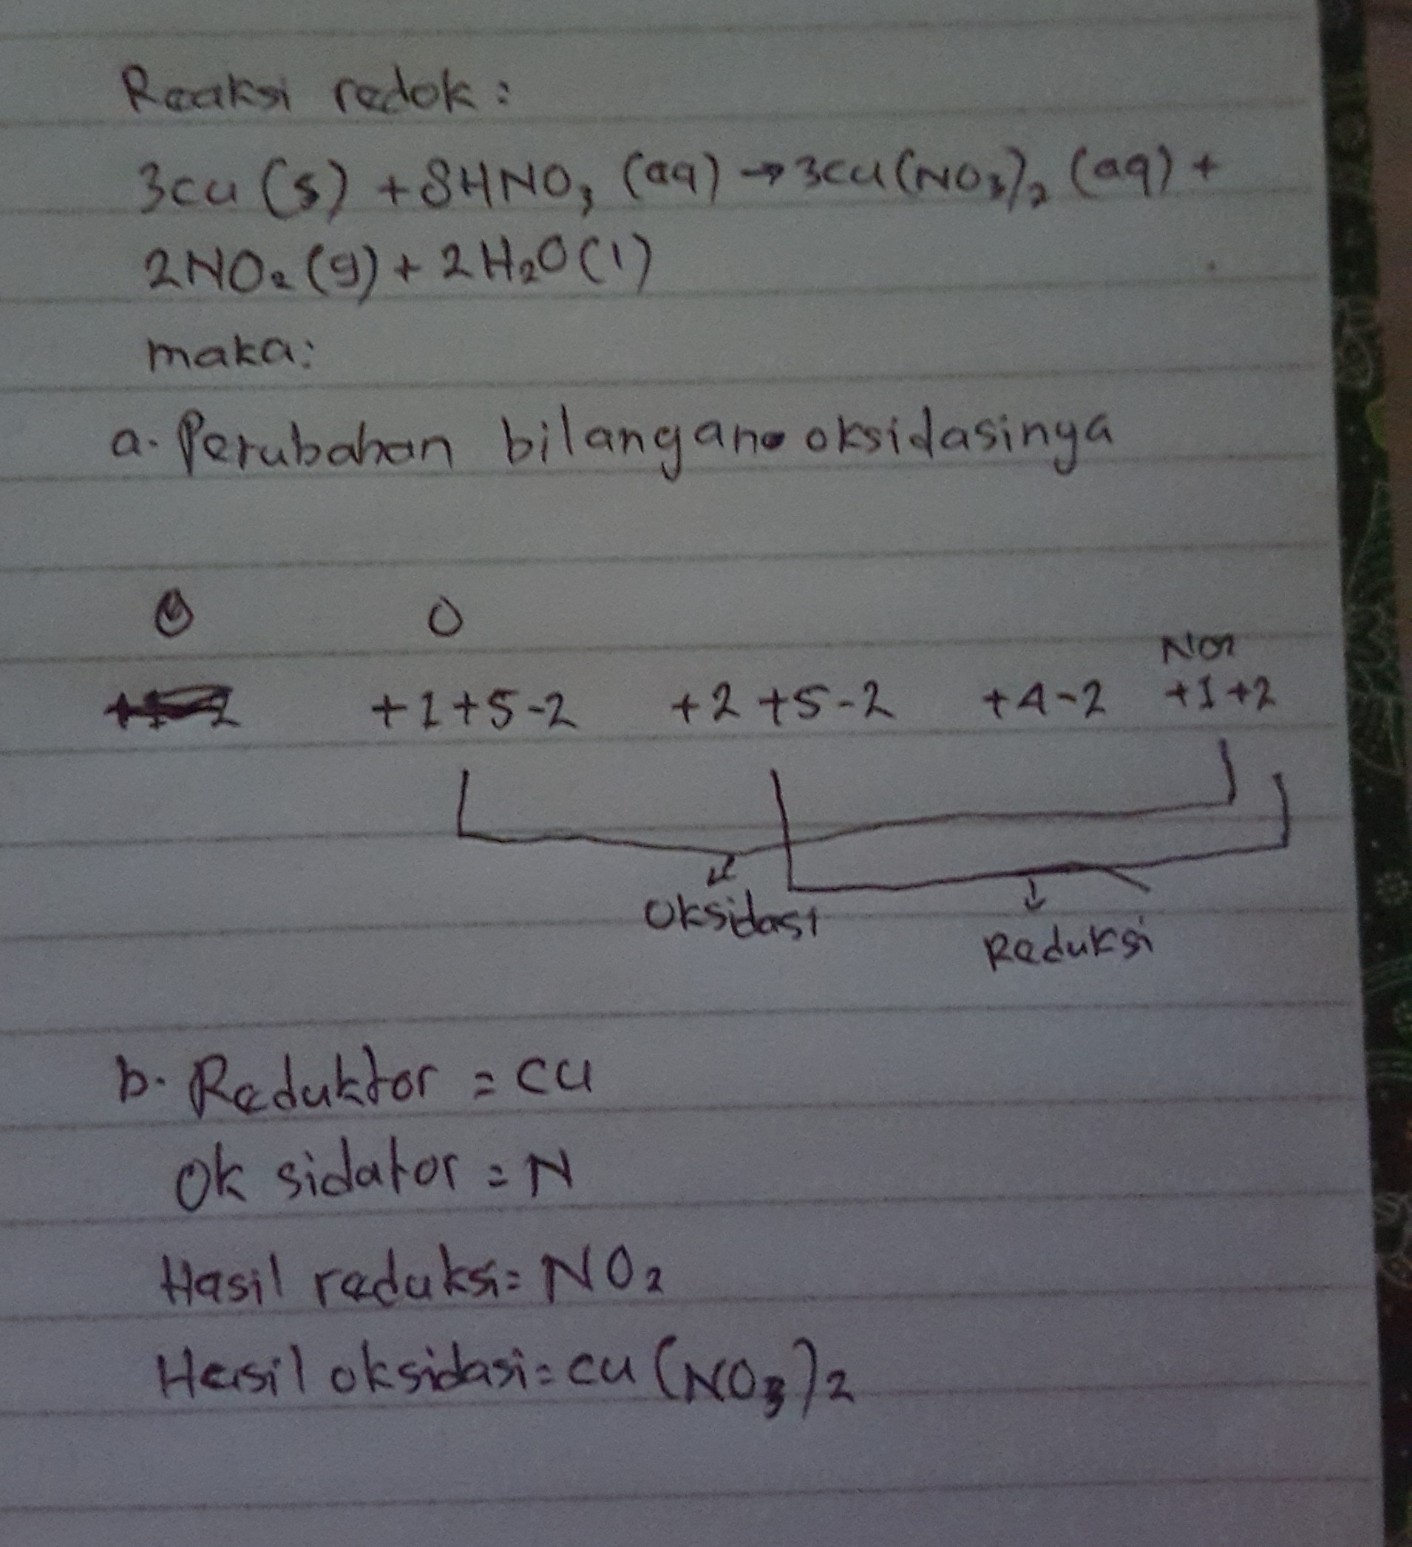 Reaksi redok :
3cu (s) + 8HNO₃ (aq) → 3cu(NO₃)₂ (aq) +
2NO₂ (g) + 2H₂O(l)
maka:
a. Perubahan bilangan oksidasinya
0 0
+1+5-2 +2 +5-2 +4-2 +1+2
Oksidasi
Reduksi
b. Reduktor = cu
Ok sidator = N
Hasil reduksi = NO₂
Hasil oksidasi = cu (NO₃)₂